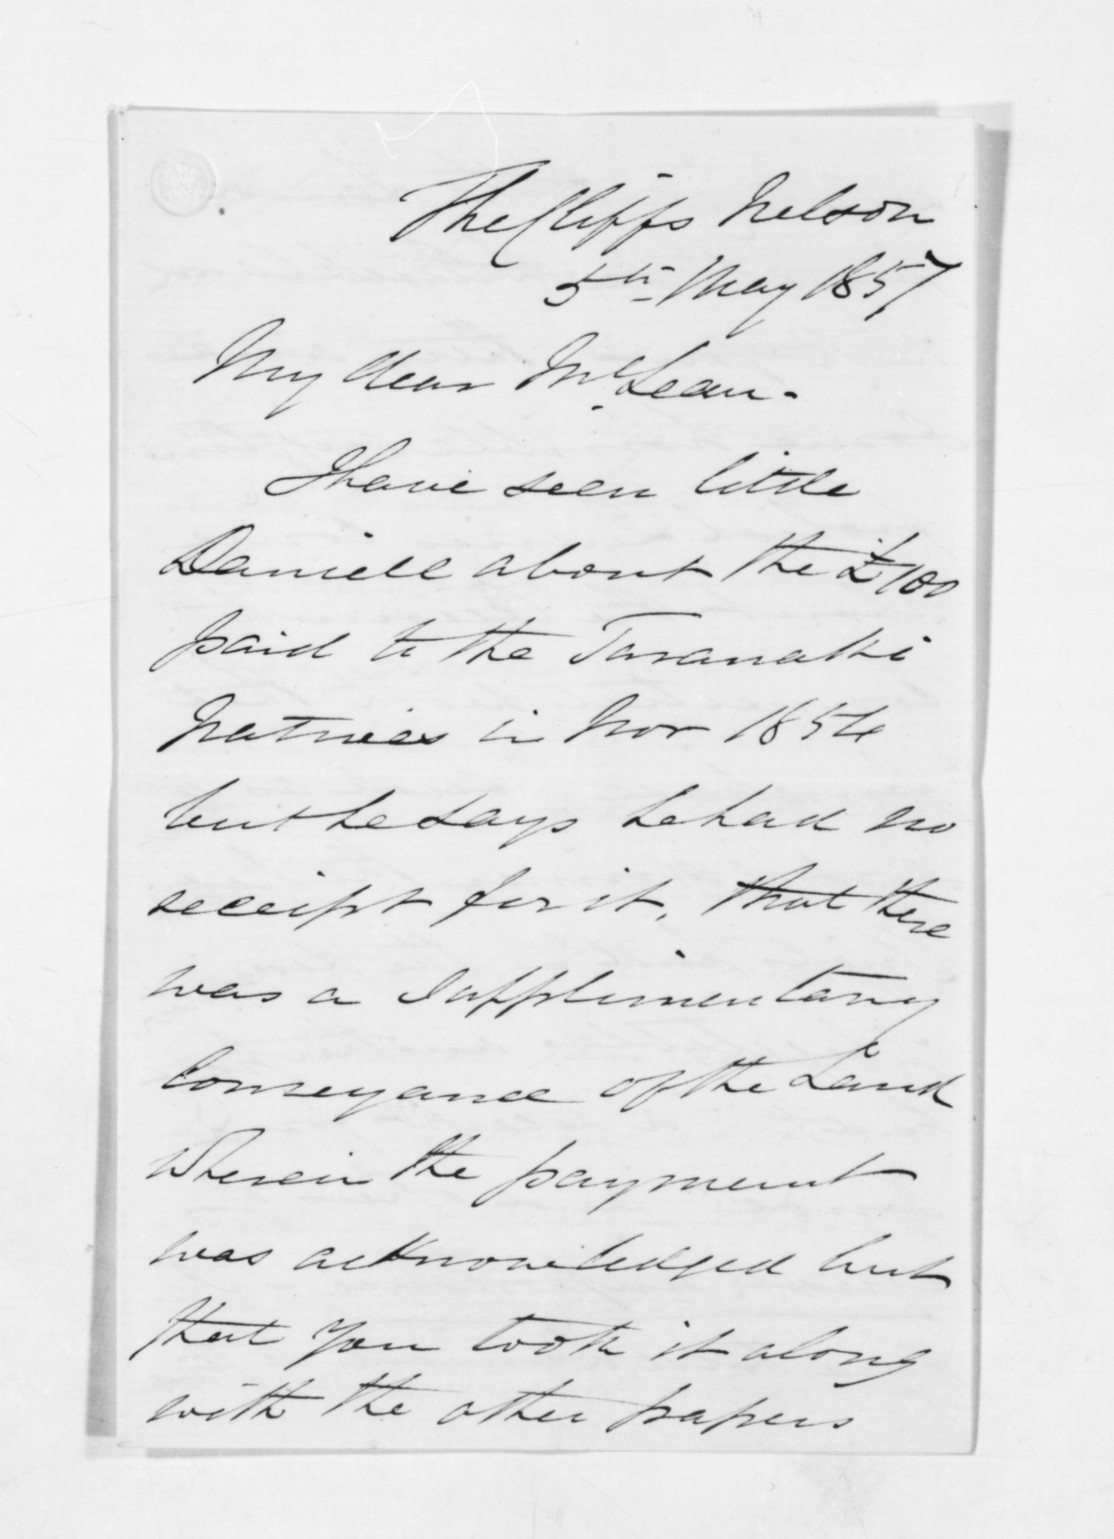 The Cliffs Nelson
5th May 1857
My dear McLean.
I have seen little
Daniell about the £100
paid to the Taranaki
Natives in Nov 1854
but he says he had no
receipt for it, that there
was a supplimentary
conveyance of the Land
wherein the payment
was acknowledged but
that you took it along
with the other papers